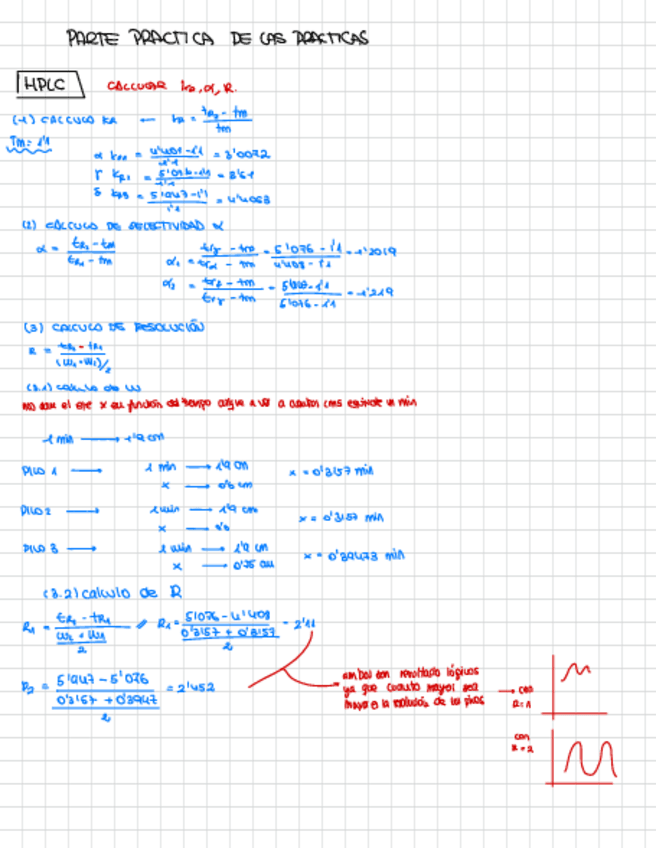 PARTE PRACTICA DE LAS PRACTICAS
HPLC CALCULAR kR, α, R.
(1) CALCULO kR ← kR = tR - tm / tm
Tm = 1'1
α kR1 = 4'408-1'1 / 1'1 = 3'0072
γ kR2 = 5'076-1'1 / 1'1 = 3'61
δ kR3 = 5'947-1'1 / 1'1 = 4'4063
(2) CÁLCULO DE SELECTIVIDAD α
α = tR2 - tm / tR1 - tm
α1 = tRγ - tm / tRα - tm = 5'076 - 1'1 / 4'408 - 1'1 = 1'2019
α2 = tRδ - tm / tRγ - tm = 5'947 - 1'1 / 5'076 - 1'1 = 1'219
(3) CALCULO DE RESOLUCIÓN
R = tR2 - tR1 / (W2+W1)/2
(3.1) calculo de W
nos dan el eje x en función del tiempo a ver a cuantos cms equivale un min
1 min → 1'9 cm
PICO 1 → 1 min → 1'9 cm x = 0'3157 min
x → 0'6 cm
PICO 2 → 1 min → 1'9 cm x = 0'3157 min
x → 0'6
PICO 3 → 1 min → 1'9 cm x = 0'39473 min
x → 0'75 cm
(3.2) calculo de R
R1 = tR2 - tR1 / W2 + W1 / 2 // R1 = 5'076 - 4'408 / 0'3157 + 0'3157 / 2 = 2'11
R2 = 5'947 - 5'076 / 0'3157 + 0'3947 / 2 = 2'452
ambos son resultado lógicos
ya que cuanto mayor sea → con
mayor es la resolución de los picos R = 1
con
R = 2